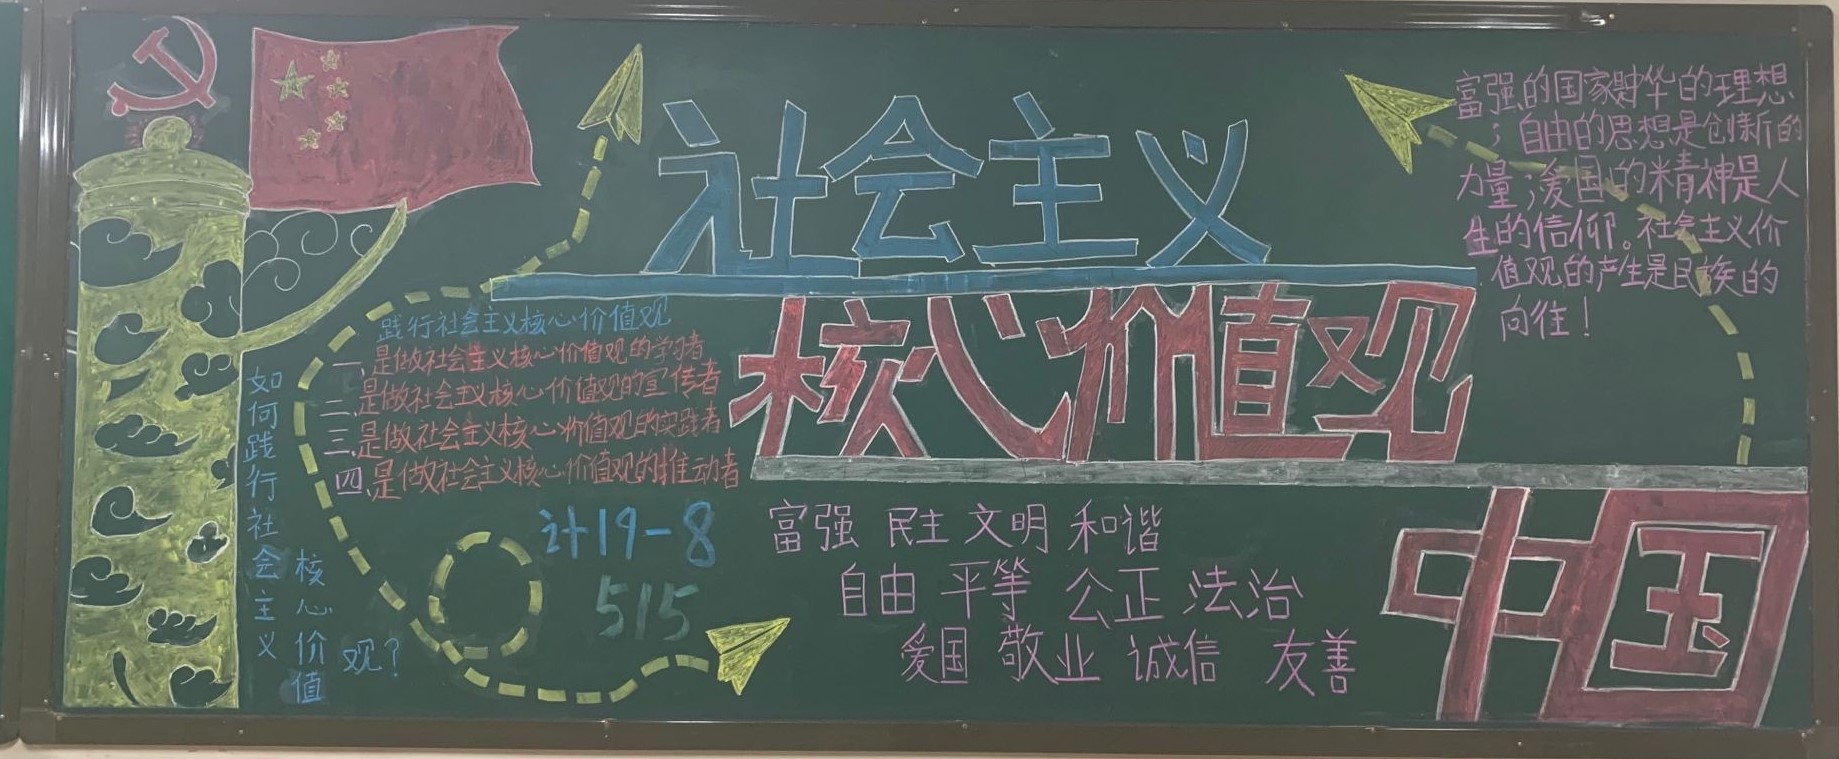 社会主义
核心价值观
中国
践行社会主义核心价值观
一、是做社会主义核心价值观的学习者
二、是做社会主义核心价值观的宣传者
三、是做社会主义核心价值观的实践者
四、是做社会主义核心价值观的推动者
如何践行社会主义
核心价值
观?
计19-8
515
富强 民主 文明 和谐
自由 平等 公正 法治
爱国 敬业 诚信 友善
富强的国家是中华的理想
；自由的思想是创新的
力量；爱国的精神是人
生的信仰。社会主义价
值观的产生是民族的
向往！